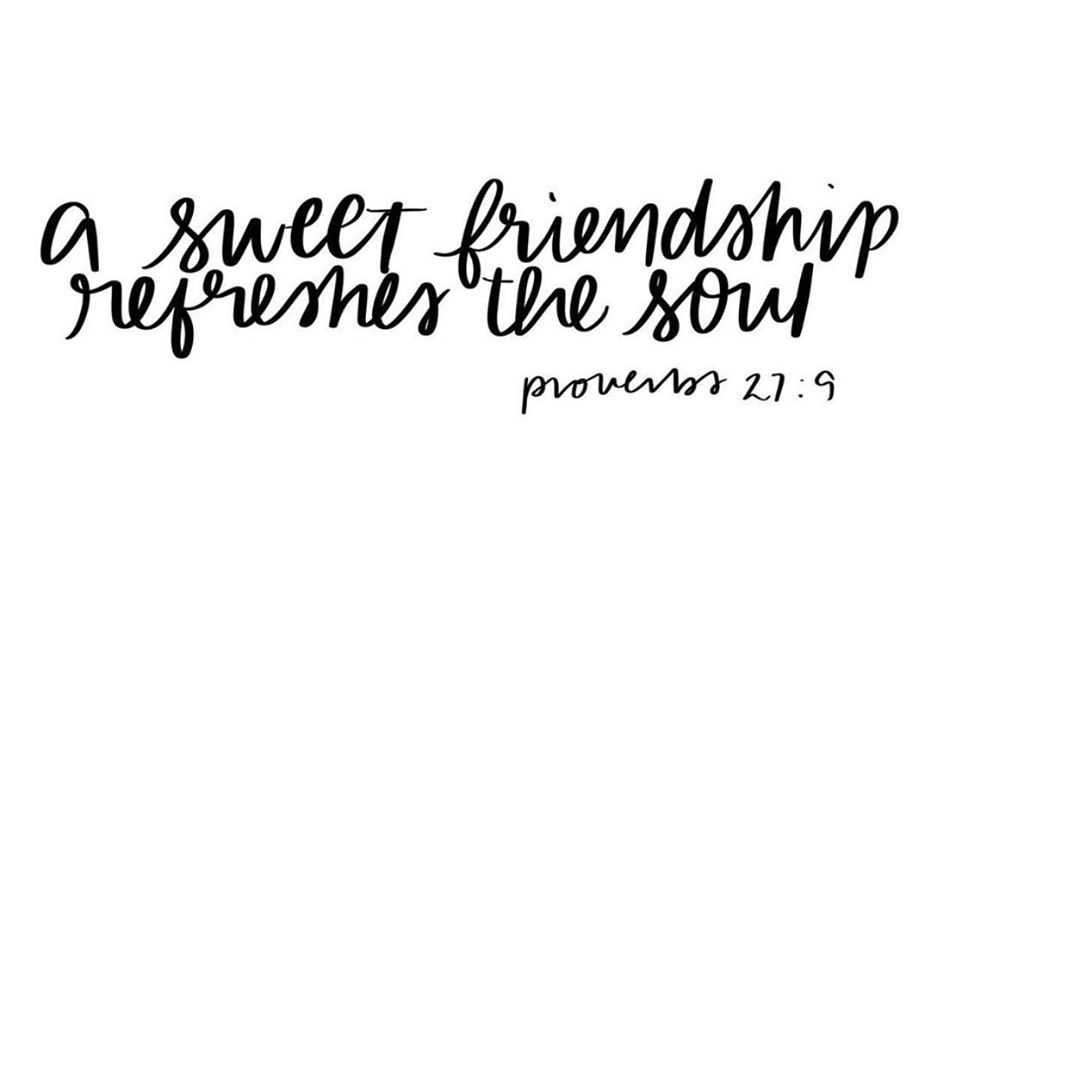 a sweet friendship
refreshes the soul
proverbs 27:9